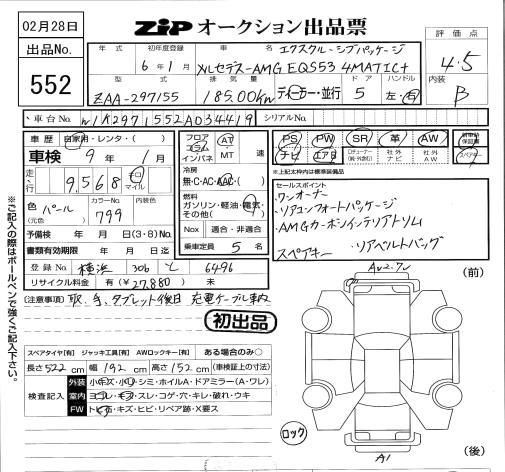 02月28日
ZIP オークション出品票
出品No.
552
評価点
4.5
内装
B
年式 初年度登録 車名
6年1月
エクスクルーシブパッケージ
メルセデス-AMG EQS53 4MATIC+
型式 排気量 ドア ハンドル
ZAA-297155 185.00kw ディーラー・並行 5 左・右
車台No. W1K2971552A034419 シリアルNo.
車歴 自家用・レンタ・( )
車検 9年1月
走行 9,568 キロ マイル
色 (元色) パール カラーNo. 799 内装色
予備検 年 月 日(3・8)No.
書類有効期限 年 月 日
登録No. 横浜 306 と 6496
リサイクル料金 有(¥27,880) 無
フロア コラム インパネ AT MT 速
冷房 無・C・AC・AAC・( )
燃料 ガソリン・軽油・電気・その他( )
Nox 適合・非適合
乗車定員 5名
PS PW SR 革 AW
ナビ エアB 社外ナビ 社外AW
※上記太枠内は標準装備品
セールスポイント
・ワンオーナー
・リヤコンフォートパッケージ
・AMGカーボンインテリアトリム
スペアキー ・リアベルトバッグ
(注意事項) 取、手、タブレット後日 充電ケーブル車内
初出品
※ご記入の際はボールペンで強くご記入下さい。
スペアタイヤ[有] ジャッキ工具[有] AWロックキー[有] ある場合のみ○
長さ522cm 幅192cm 高さ152cm (車検証上の寸法)
検査記入
外装 小キズ・小凹・シミ・ホイルA・ドアミラー(A・ワレ)
室内 ヨゴレ・キズ・スレ・コゲ・穴・キレ・破れ・ウキ
FW トビ石・キズ・ヒビ・リペア跡・X要ス
A2.7U
(前)
ロック
A1
(後)